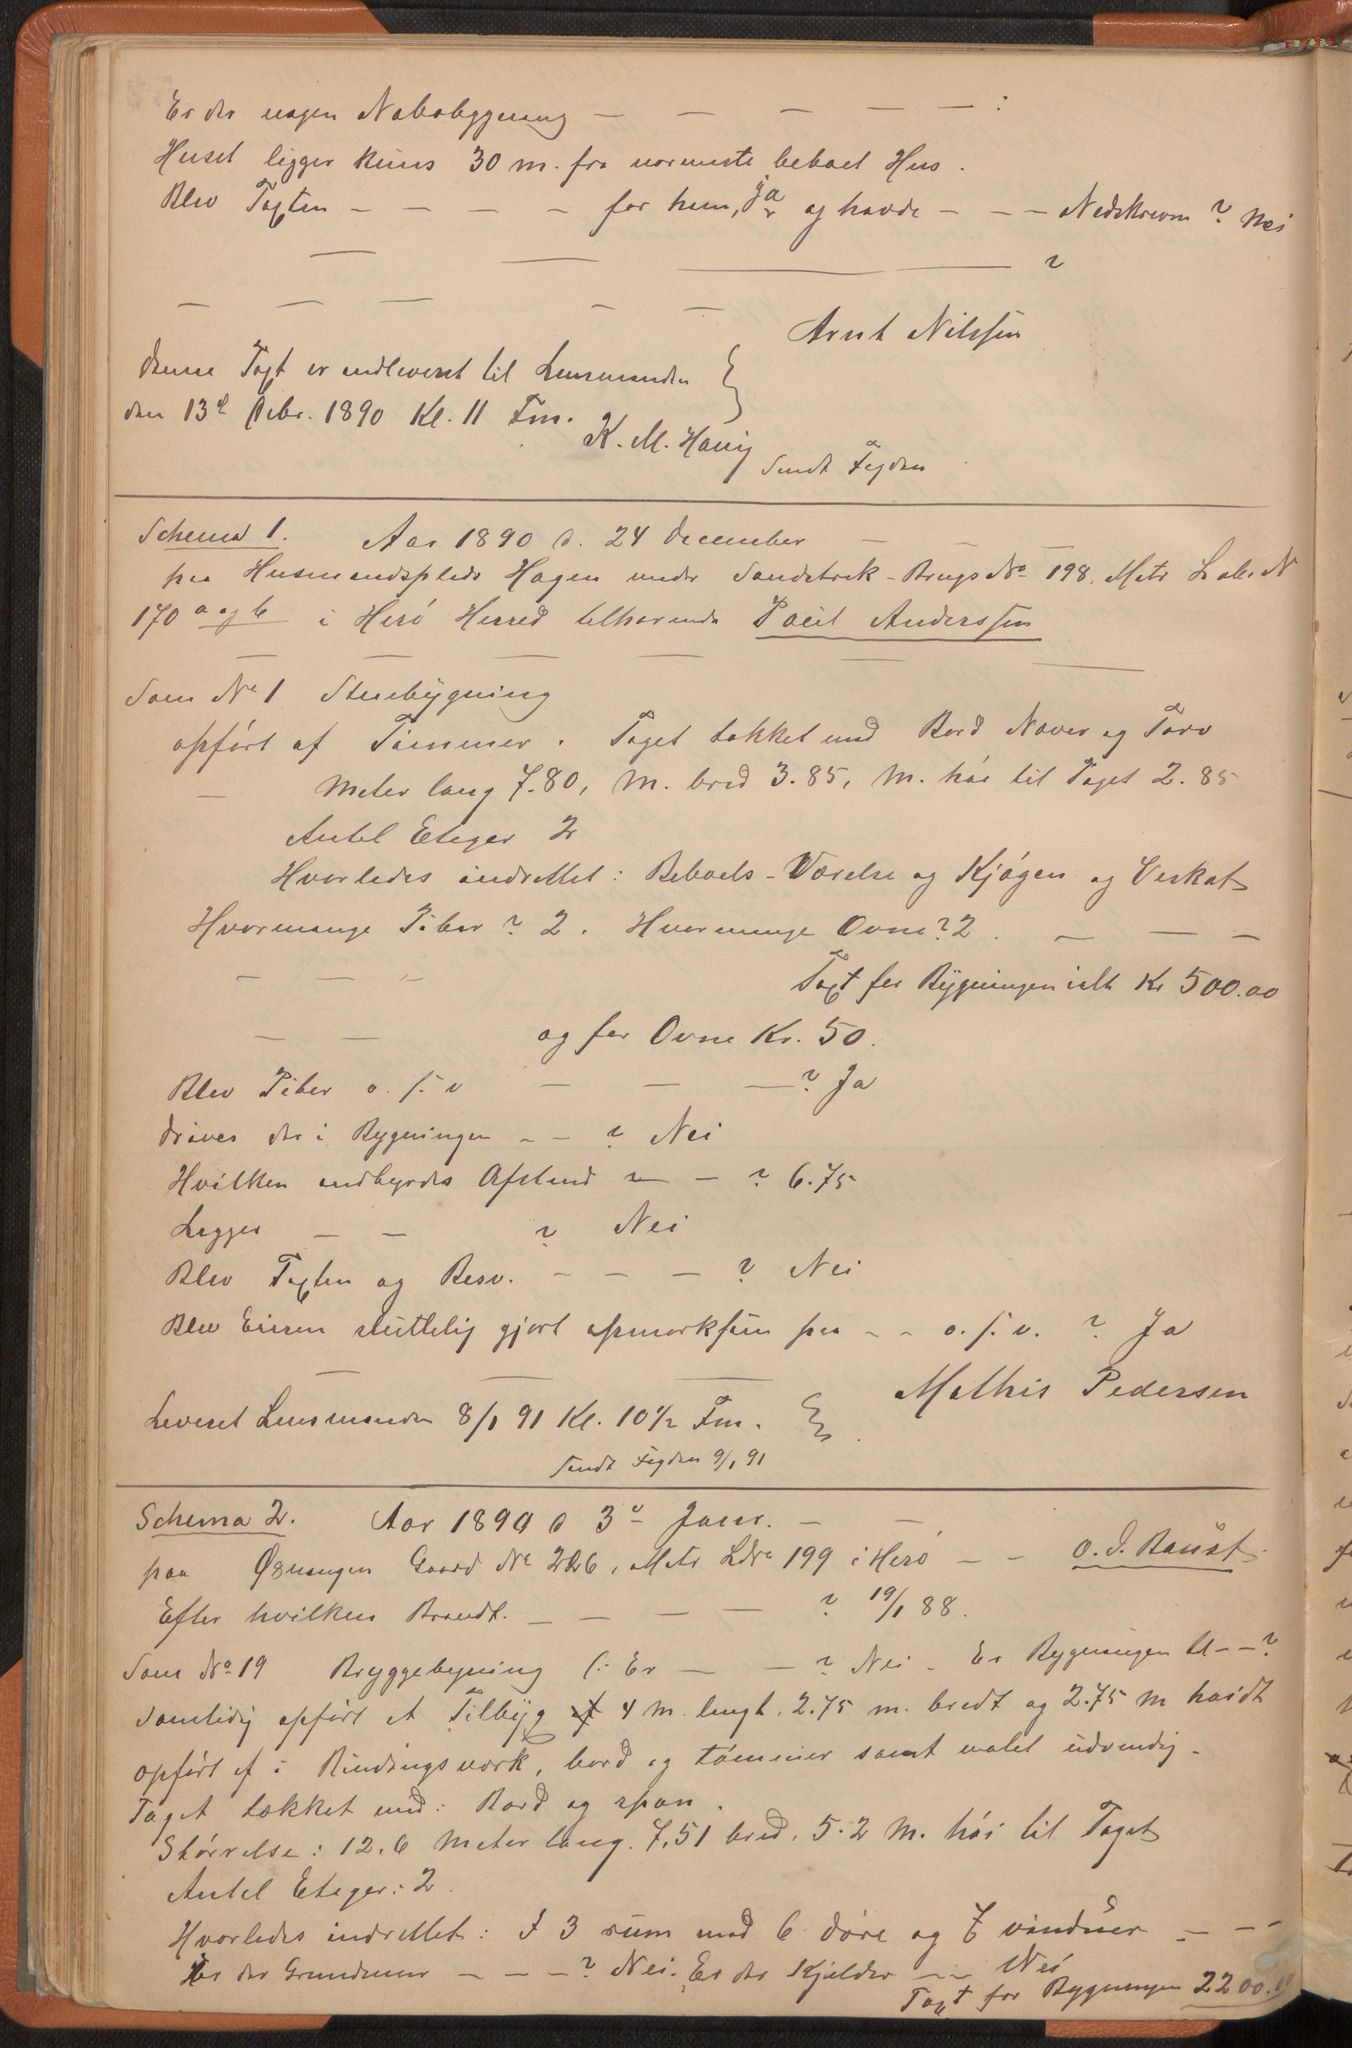 Er der nogen Nabobygning — — — — — :
Huset ligger kuns 30 m. fra nærmeste beboet Hus.
Blev Taxten — — — — for ham, ja og havde — — — Nedskreven ? Nei
— — — — ?
— — — — —
Arnt Nilssen
Denne Taxt er indleveret til Lensmanden
den 13d Febr. 1890 Kl. 11 Fm.
K. M. Havig
Sendt Fogden
Schema 1. Aar 1890 d. 24 December — —
paa Husmandsplads Hagen under Sandstrak - Brugs No 198, Matr Løbe N
170 a og b i Herø Herred tilhørende Poul Anderssen
— — — — — —
Som No 1 Stuebygning
opført af Tømmer. Taget tækket med Bord Næver og Torv
— Meter lang 7.80, M. bred 3.85, M. høi til Taget 2.85
Antal Etager 2
Hvorledes indrettet : Beboels - Værelse og Kjøgen og Veskat
Hvormange Piber ? 2. Hvormange Ovne ? 2. — — —
— — — Taxt for Bygningen ialt Kr 500.00
— — og for Ovne Kr. 50.
Blev Piber o. s. v — — — ? Ja
Drives der i Bygningen — — ? Nei
Hvilken indbyrdes Afstand — — ? 6.75
Ligger — — ? Nei
Blev Taxten og Besv. — — — ? Nei
Blev Eieren sluttelig gjort opmærksom paa — — o. s. v. ? Ja
— — —
Mathis Pedersen
Leveret Lensmanden 8/1 91 Kl. 10 1/2 Fm.
Sendt Fogden 9/1 91
Schema 2. Aar 1890 d 3d Janr. — —
paa Øxningen Gaard No 226, Matr Løbe 199 i Herø — — O. J. Baust.
Efter hvilken Brandt. — — — — ? 19/1 88.
Som No 19 Bryggebygning (: Er — — ? Nei - Er Bygningen til — — ?
Samtidig opført et Tilbyg 4 m. langt. 2.75 m. bredt og 2.75 m høidt
opført af i Bindingsværk, bord og tømmer samt malet udvendig.
Taget tækket med : Bord og spon.
Størrelse : 12.6 Meter lang. 7.51 bred. 5.2 M. høi til Taget
Antal Etager : 2.
Hvorledes indrettet : I 3 rum med 6 døre og 7 vinduer — — —
Er der Grundmur — — — ? Nei. Er der Kjelder — — Nei
Taxt for Bygningen 2200.